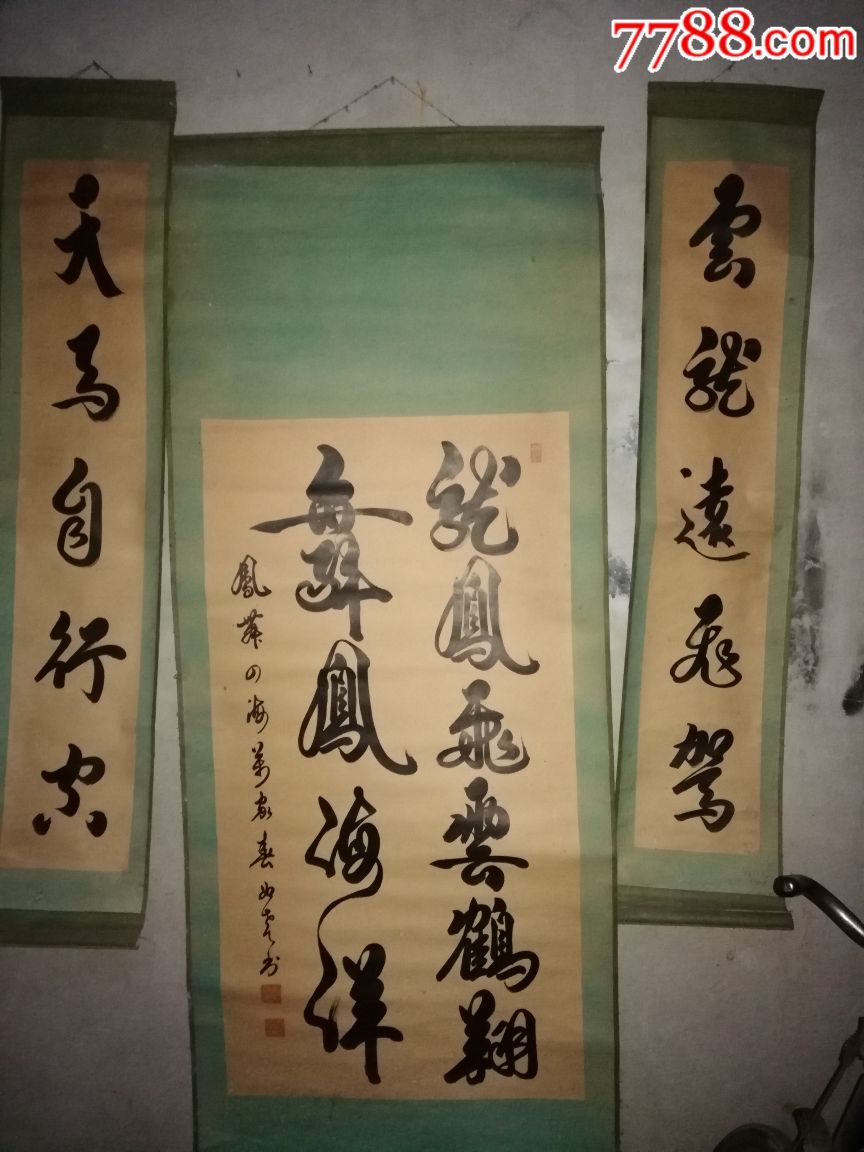 7788.com
雲龍遠飛駕
龍鳳飛雲鶴翔
舞鳳海祥
鳳舞四海萬家春
書
天馬自行空